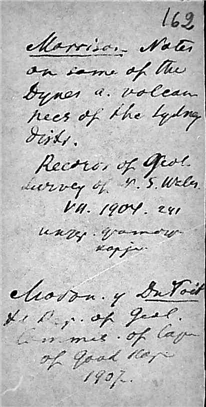 162
Morrison. Notes
on some of the
Dynes a. volcan
necs of the Sydney
distr.
Records of Geol.
survey of N. S. Wales.
VII. 1904. 241
Du Toit
of Geol.
Commis. of Cape
of Good Hope
1907.